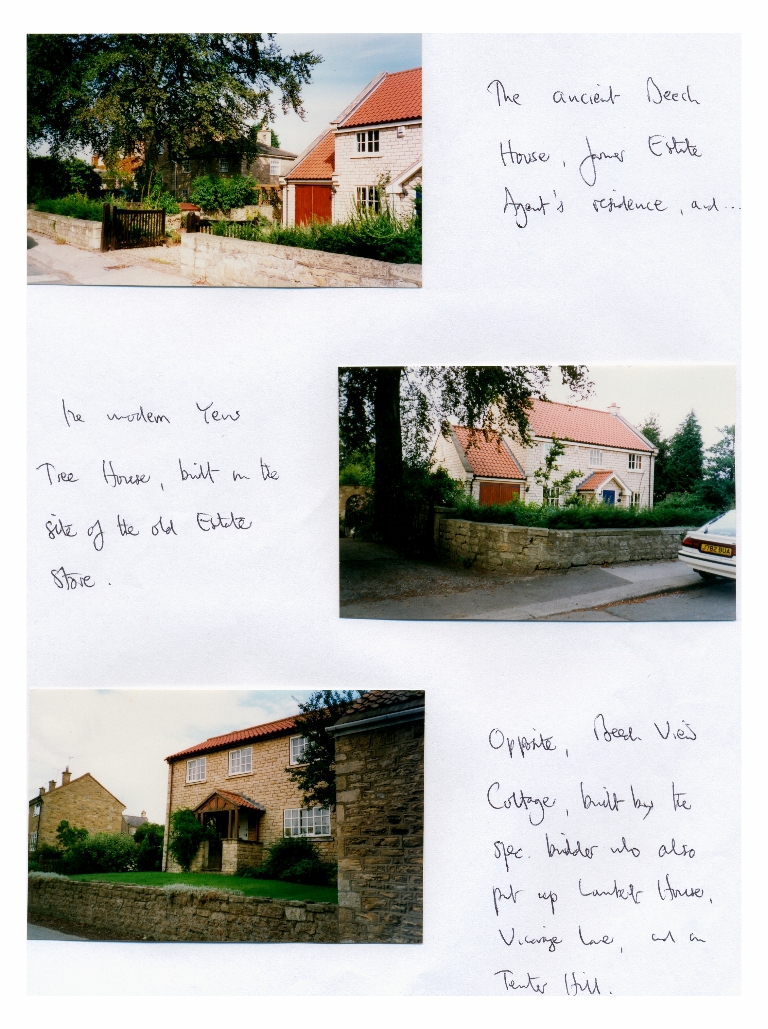 The ancient Beech
House, former Estate
Agent's residence, and...
The modern Yews
Tree House, built on the
site of the old Estate
Store.
J782 BUA
Opposite, Beech View
Cottage, built by the
spec. builder who also
put up Lambert House,
Vicarage Lane, and on
Tenter Hill.